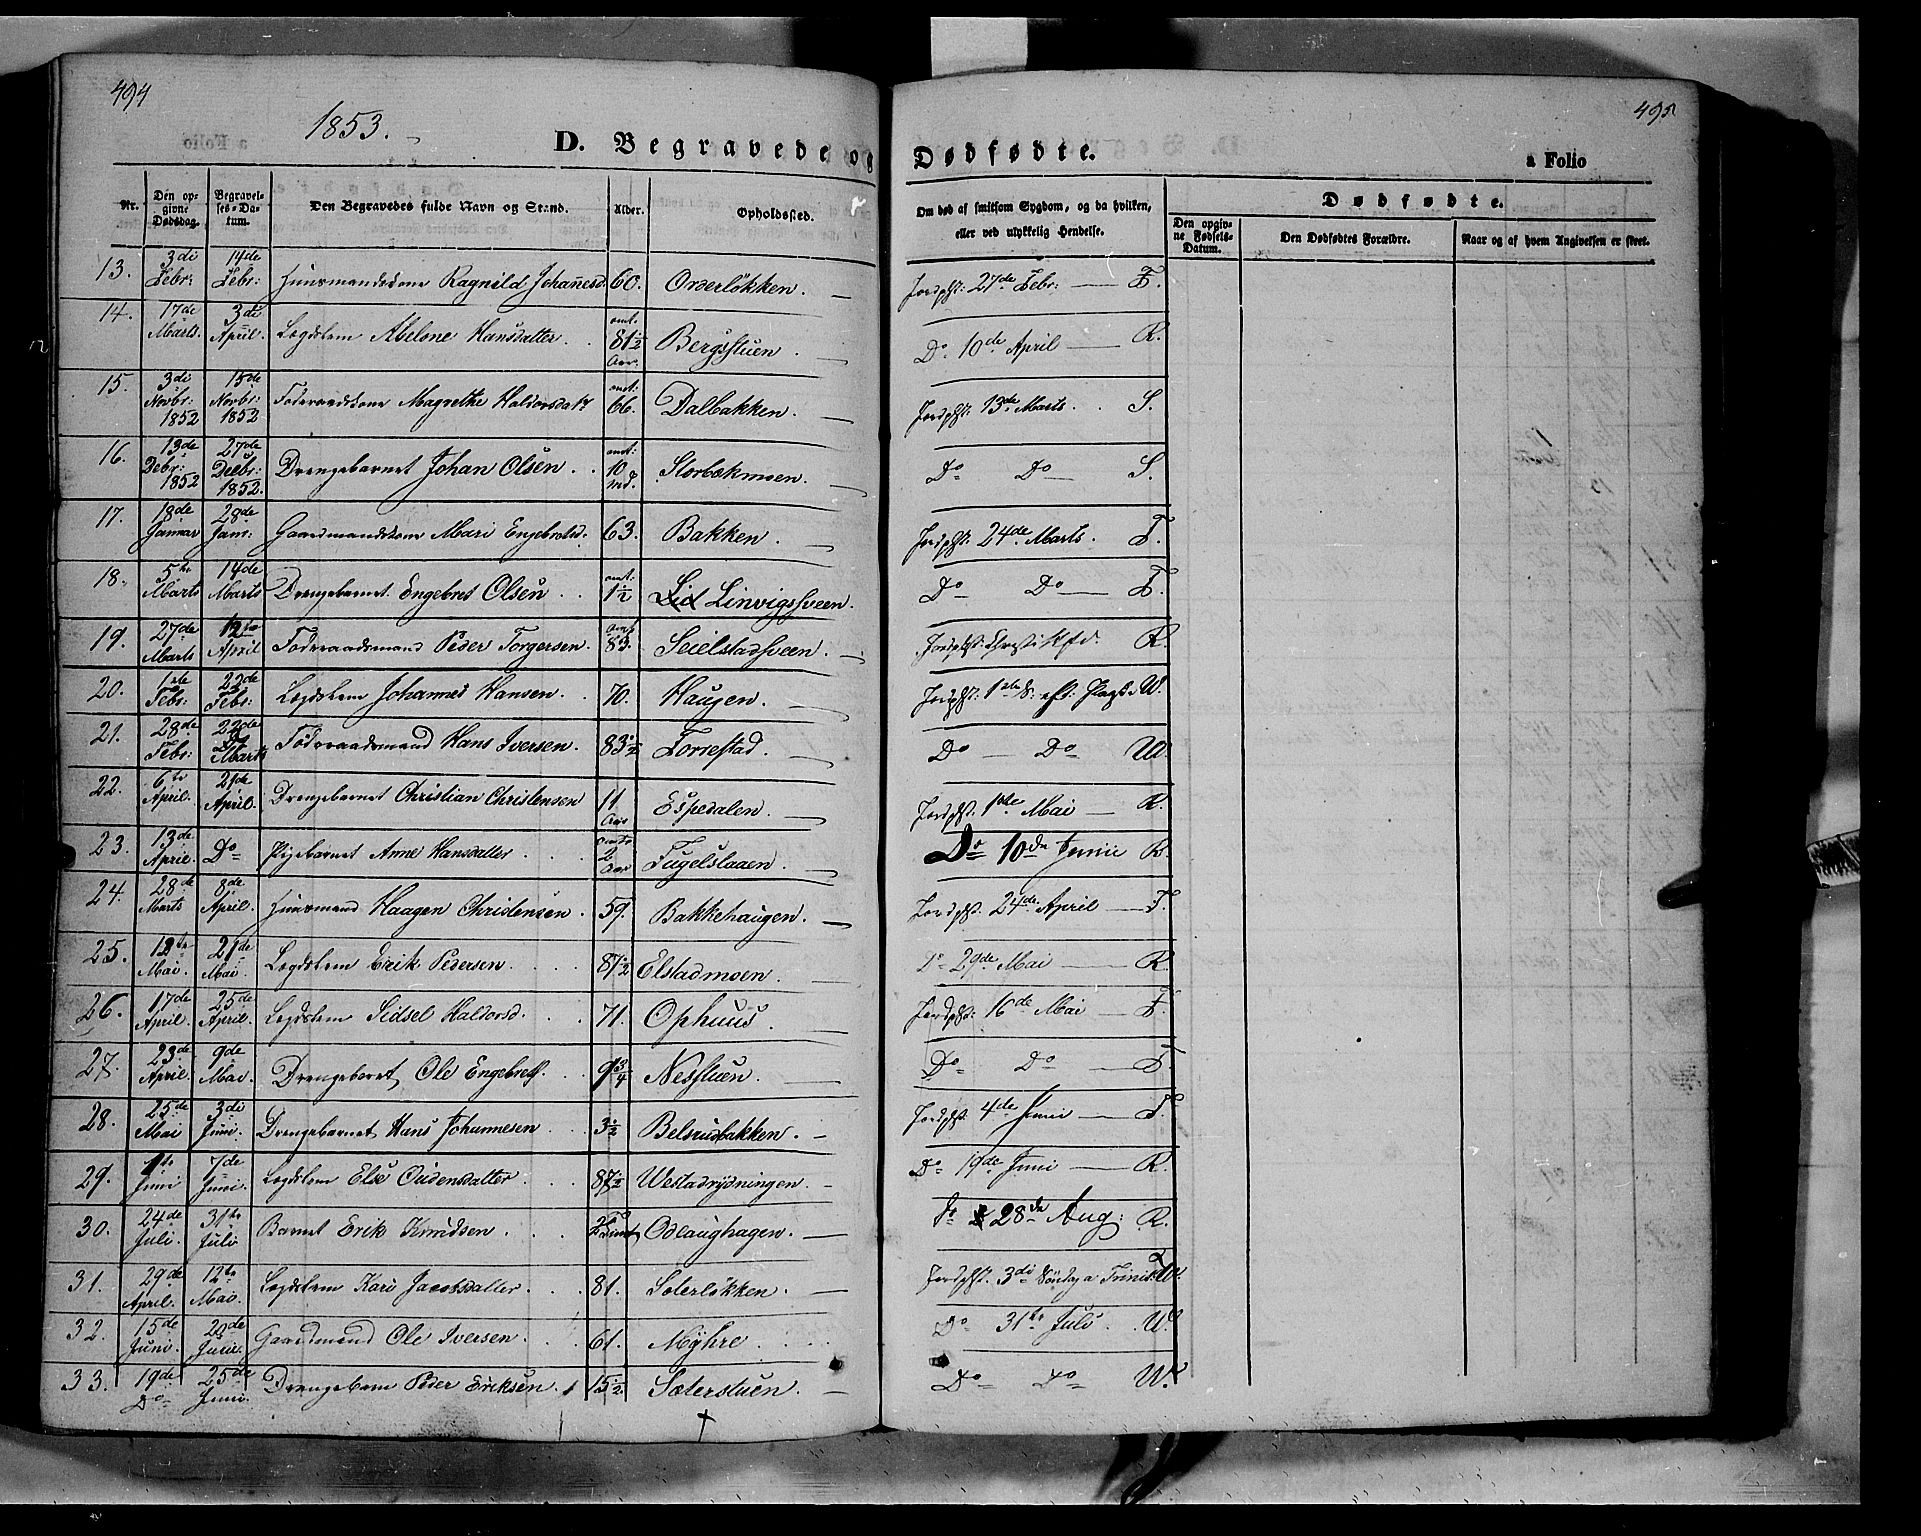 494
495
1853.
D. Begravede og Dødfødte.
a Folio
Nr.
Den opgivne Dødsdag.
Begravelses-Datum.
Den Begravedes fulde Navn og Stand.
Alder.
Opholdssted.
Om død af smitsom Sygdom, og da hvilken, eller ved ulykkelig Hendelse.
Dødfødte.
Den opgivne Fødsels-Datum.
Den Dødfødtes Forældre.
Naar og af hvem Angivelsen er skeet.
13. 3di Febr: 14de Febr: Huusmandskone Ragnild Johannesd. 60. Orderløkken. Jordpkst: 27de Febr: F.
14. 17de Marts. 3di April. Lægdslem Abelone Hansdatter. omt. 81½ Aar. Bergsstuen. Do 10de April R.
15. 3di Novbr: 1852 15de Novbr: 1852 Føderaadskone Magrethe Haldorsdatr omt: 66. Dalbakken. Jordpkst: 13de Marts. S.
16. 13de Debr: 1852 27de Decbr: 1852. Drengebarnet Johan Olsen. omt: 10 md. Storbækmoen. Do Do S.
17. 18de Januar 28de Jan: Gaardmandskone Mari Engebretsd. 63. Bakken. Jordpkst: 24de Marts. F.
18. 5te Marts 14de Marts Drengebarnet Engebret Olsen. omt. 1½ Linvigssveen. Do Do F.
19. 27de Marts 12te April Føderaadsmand Peder Torgersen. omt 83. Seielstadsveen. Jordpkst: Christi Hfd. R.
20. 1ste Febr: 22de Febr: Lægdslem Johannes Hansen. 70. Haugen. Jordpkst: 1ste S: eft: Paaske W.
21. 28de Febr: 22de Marts Føderaadsmand Hans Iversen. 83½ Forrestad. Do Do W.
22. 6te April. 21de April. Drengebarnet Christian Christensen 11. Aar Espedalen. Jordpkst: 1ste Mai R.
23. 13de April. Do Pigebarnet Anne Hansdatter. omtr 2 Aar Fugelslaaen. Do 10de Junii R.
24. 28de Marts 8de April. Huusmand Haagen Christensen. 59. Bakkehaugen. Jordpkst. 24de April F.
25. 12te Mai. 21de Mai. Lægdslem Erik Pedersen. 87½ Elstadmoen. Do 29de Mai R.
26. 17de April. 25de April. Lægdslem Sidsel Haldorsd. 71. Ophuus. Jordpkst: 16de Mai F.
27. 23de April. 9de Mai. Drengebarnet Ole Engebrets. 9¾ Nesstuen. Do Do F.
28. 25de Mai 3di Juni. Drengebarnet Hans Johannesen. 3½ Belsrudbakken. Jordpkst. 4de Junii F.
29. 1te Juni 7de Juni. Lægdslem Else Oudensdatter. 87½ Westadrydningen. Do 19de Juni R.
30. 24de Juli. 31te Juli Barnet Erik Knudsen. Odlaughagen. Do 28de Aug: R.
31. 29de April. 12te Mai. Lægdslem Kari Jacobsdatter. 81. Sæterløkken. Jordpkst. 3di Søndag a Trinit. W.
32. 15de Juni. 20de Junii. Gaardmand Ole Iversen. 61. Myhre. Do 31te Juli. W.
33. 19de Do 25de Junii. Drengebarn Peder Eriksen. 15½. Sæterstuen. Do Do W.